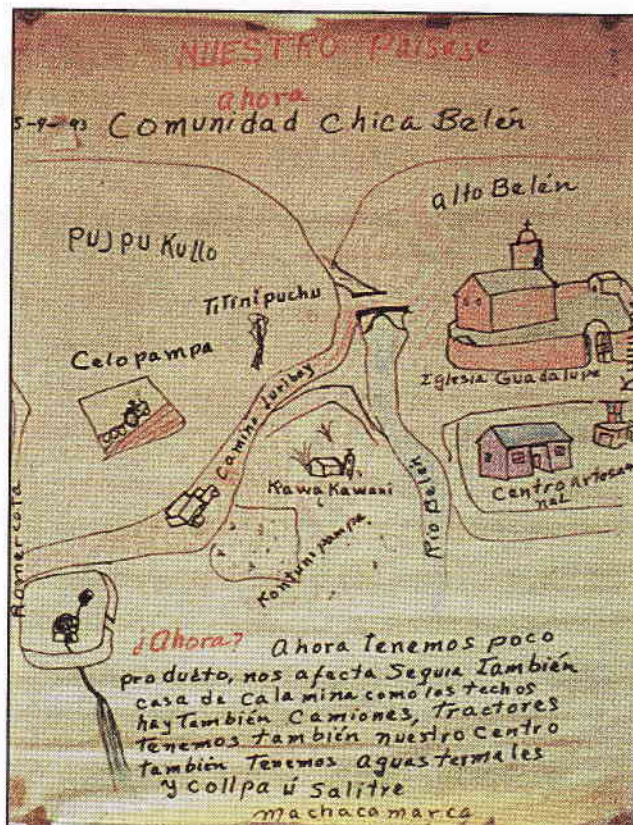 NUESTRO Paisaje
ahora
5-9-93 Comunidad Chica Belén
alto Belén
PUJPU KULLO
TiTinipuchu
Celopampa
Iglesia Guadalupe
Camino Luribay
Kawa Kawani
Rio Belén
Centro Artesa
nal
Kontuni pampa
¿Ahora? Ahora Tenemos poco
produĉto, nos afecta Seguia También
casa de Calamina como los techos
hay También Camiones, Tractores
tenemos también nuestro Centro
también Tenemos aguas termales
y collpa ú Salitre
machacamarca